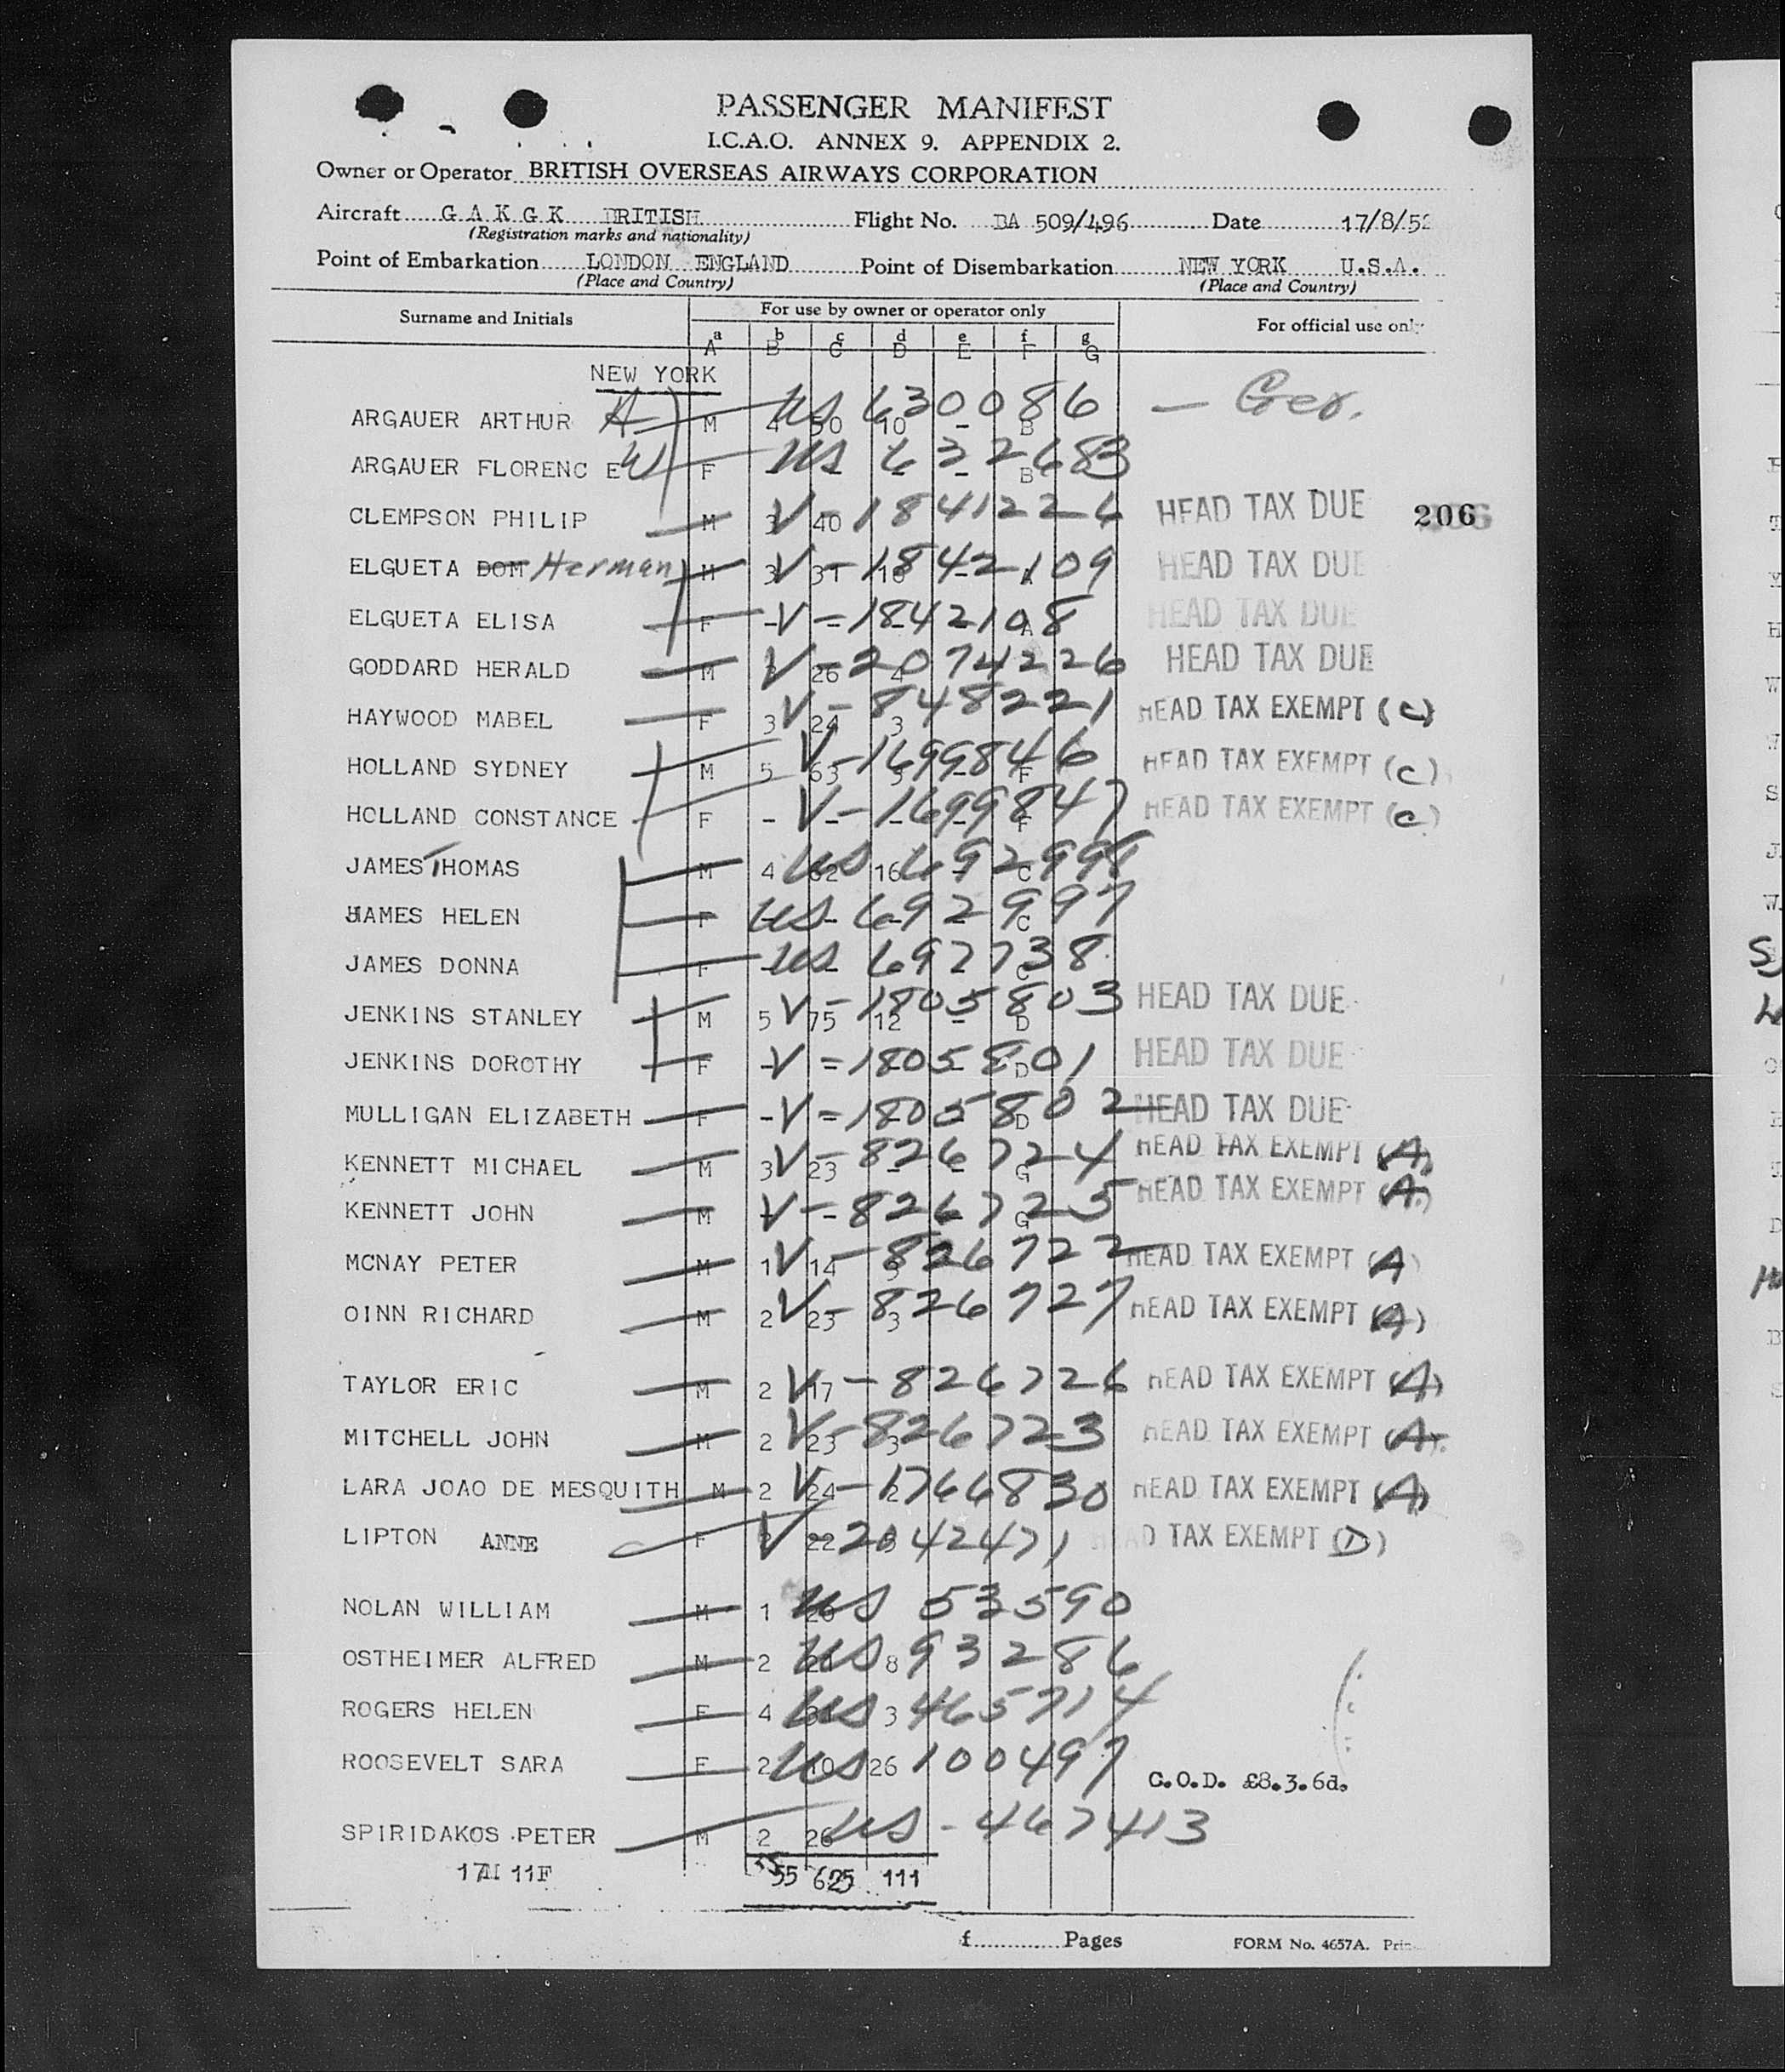 PASSENGER MANIFEST
I.C.A.O. ANNEX 9. APPENDIX 2.
Owner or Operator BRITISH OVERSEAS AIRWAYS CORPORATION
Aircraft G A K G K BRITISH Flight No. BA 509/496 Date 17/8/52
(Registration marks and nationality)
Point of Embarkation LONDON ENGLAND Point of Disembarkation NEW YORK U.S.A.
(Place and Country) (Place and Country)
Surname and Initials For use by owner or operator only For official use only
a b c d e f g
A B C D E F G
NEW YORK
ARGAUER ARTHUR H M 4 50 10 - B US 630086 - Ger.
ARGAUER FLORENC E W F - - - - B US 632683
CLEMPSON PHILIP M 3 40 V-1841226 HEAD TAX DUE 206
ELGUETA DOM Herman M 3 31 10 - A V-1842109 HEAD TAX DUE
ELGUETA ELISA F - - - - A V-1842108 HEAD TAX DUE
GODDARD HERALD M 26 4 V-2074226 HEAD TAX DUE
HAYWOOD MABEL F 3 24 3 V-848221 HEAD TAX EXEMPT (C)
HOLLAND SYDNEY M 5 63 5 - F V-1699846 HEAD TAX EXEMPT (C)
HOLLAND CONSTANCE F - - - - F V-1699847 HEAD TAX EXEMPT (C)
JAMES THOMAS M 4 62 16 - C US 692998
JAMES HELEN F - - - - C US 692997
JAMES DONNA F - - C US 697738
JENKINS STANLEY M 5 75 12 - D V-1805803 HEAD TAX DUE
JENKINS DOROTHY F - - - - D V-1805801 HEAD TAX DUE
MULLIGAN ELIZABETH F - - - - D V-1805802 HEAD TAX DUE
KENNETT MICHAEL M 3 23 - - G V-826724 HEAD TAX EXEMPT (A)
KENNETT JOHN M - - - - G V-826725 HEAD TAX EXEMPT (A)
MCNAY PETER M 1 14 3 V-826722 HEAD TAX EXEMPT (A)
OINN RICHARD M 2 23 3 V-826727 HEAD TAX EXEMPT (A)
TAYLOR ERIC M 2 17 V-826726 HEAD TAX EXEMPT (A)
MITCHELL JOHN M 2 23 3 V-826723 HEAD TAX EXEMPT (A)
LARA JOAO DE MESQUITH M 2 24 2 V-1766830 HEAD TAX EXEMPT (A)
LIPTON ANNE F 22 V-2042471 HEAD TAX EXEMPT (D)
NOLAN WILLIAM M 1 26 US 53590
OSTHEIMER ALFRED M 2 8 US 93286
ROGERS HELEN F 4 3 US 465714
ROOSEVELT SARA F 2 10 26 US 100497
C.O.D. £8.3.6d.
SPIRIDAKOS PETER M 2 26 US-467413
17M 11F 55 625 111
f Pages FORM No. 4657A.